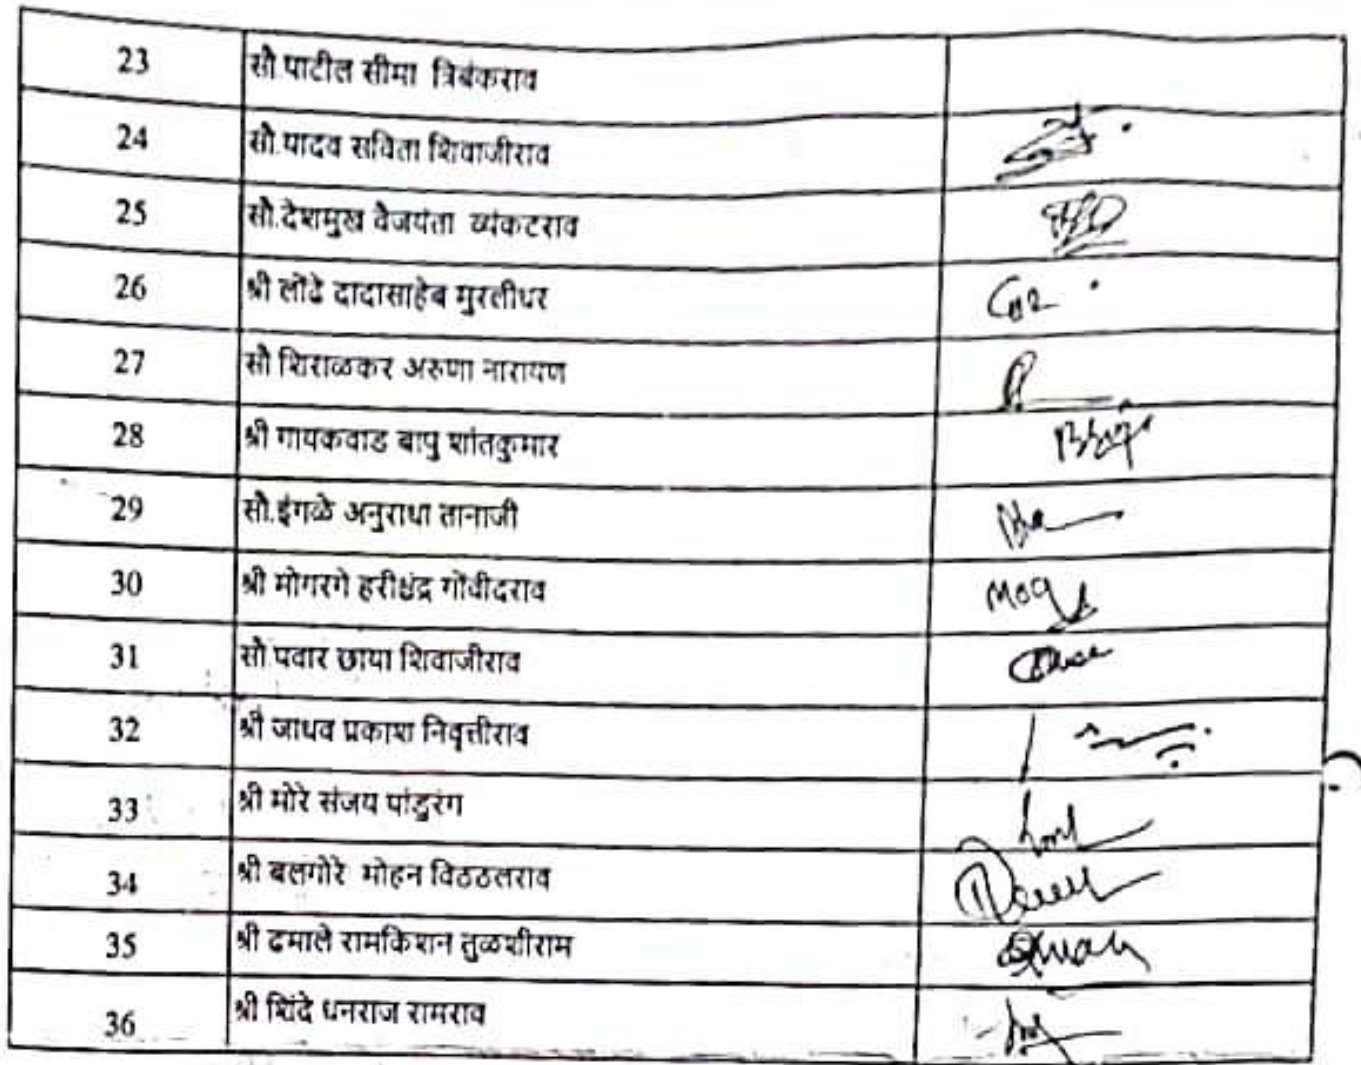 23 सौ.पाटील सीमा त्रिबंकराव
24 सौ.यादव सविता शिवाजीराव
25 सौ.देशमुख वैजयंता व्यंकटराव
26 श्री लोंढे दादासाहेब मुरलीधर
27 सौ शिराळकर अरुणा नारायण
28 श्री गायकवाड बापु शांतकुमार
29 सौ.इंगळे अनुराधा तानाजी
30 श्री मोगरगे हरीश्चंद्र गोंवीदराव
31 सौ पवार छाया शिवाजीराव
32 श्री जाधव प्रकाश निवृत्तीराव
33 श्री मोरे संजय पांडुरंग
34 श्री बलगोरे मोहन विठठलराव
35 श्री ढमाले रामकिशन तुळशीराम
36 श्री शिंदे धनराज रामराव